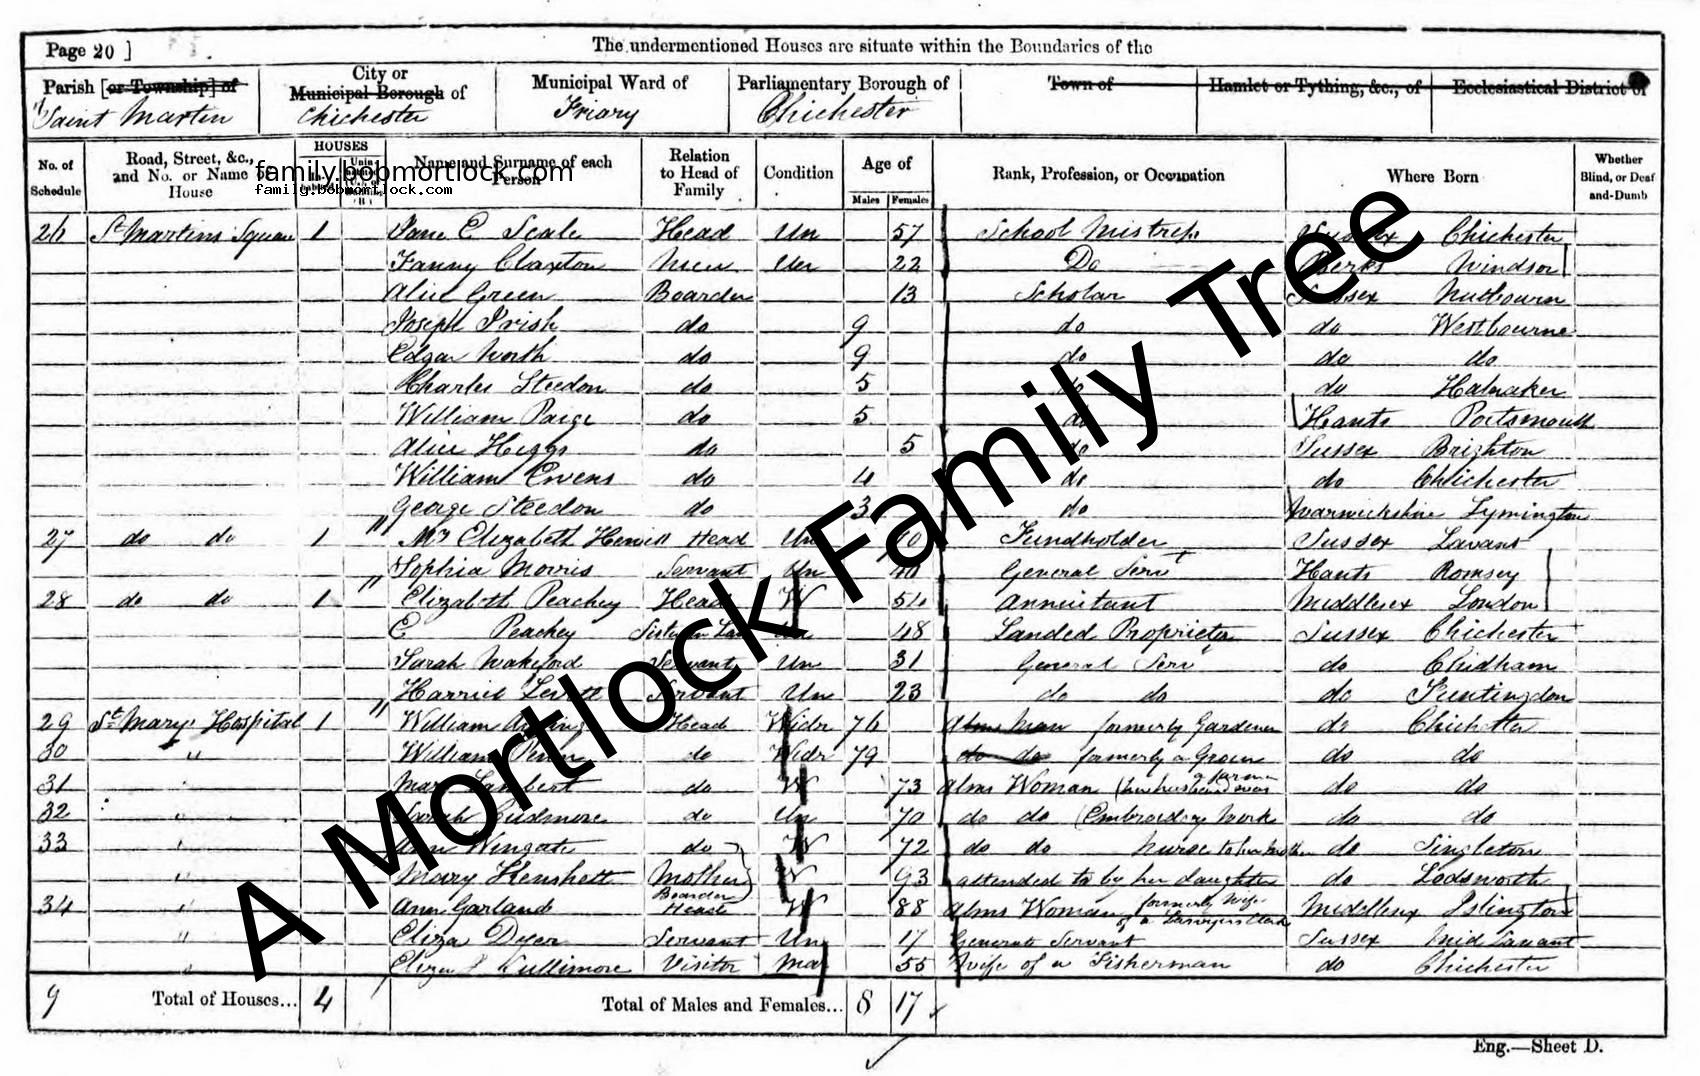 Page 20 ]
The undermentioned Houses are situate within the Boundaries of the
Parish [or Township] of
City or Municipal Borough of
Municipal Ward of
Parliamentary Borough of
Town of
Hamlet or Tything, &c., of
Ecclesiastical District of
Saint Martin
Chichester
Friary
Chichester
No. of Schedule
Road, Street, &c., and No. or Name of House
HOUSES
Name and Surname of each Person
Relation to Head of Family
Condition
Age of
Males
Females
Rank, Profession, or Occupation
Where Born
Whether Blind, or Deaf-and-Dumb
family.bobmortlock.com
family.bobmortlock.com
26 St Martins Square 1 Jane E Scale Head Un 57 School Mistress Sussex Chichester
Fanny Claxton Niece Un 22 Do Berks Windsor
Alice Green Boarder 13 Scholar Sussex Nutbourn
Joseph Irish do 9 do do Westbourne
Edgar North do 9 do do do
Charles Steedon do 5 do do Halnaker
William Paige do 5 do Hants Portsmouth
Alice Higgs do 5 do Sussex Brighton
William Ewens do 4 do do Chichester
George Steedon do 3 do Warwickshire Lymington
27 do do 1 Elizabeth Head Un Fundholder Sussex Lavant
Sophia Morris Servant Un General Servt Hants Romsey
28 do do 1 Elizabeth Peachey Head W 54 Annuitant Middlesex London
E Peachey Sister in Law 48 Landed Proprietor Sussex Chichester
Sarah Wakeford Servant Un 31 General Servt do Chidham
Harriet Servant Un 23 do do do Funtingdon
29 St Mary's Hospital 1 William Head Widr 76 Alms Man formerly Gardener do Chichester
30 " William do Widr 79 do do formerly a Grocer do do
31 " Mary Lambert do W 73 Alms Woman (her husband was a farmer do do
32 " Sarah Cudmore do Un 70 do do (Embroidery Work do do
33 " Ann Wingate do W 72 do do Nurse to her Mother do Singleton
" Mary Henshett Mother Boarder W 93 attended to by her daughter do Lodsworth
34 " Ann Garland Head W 88 Alms Woman formerly Wife of a Lawyers Clerk Middlesex Islington
" Eliza Dyer Servant Un 17 General Servant Sussex Mid Lavant
" Eliza Cullimore Visitor Mar 55 Wife of a Fisherman do Chichester
9 Total of Houses... 4 Total of Males and Females... 8 17
Eng.—Sheet D.
A Mortlock Family Tree